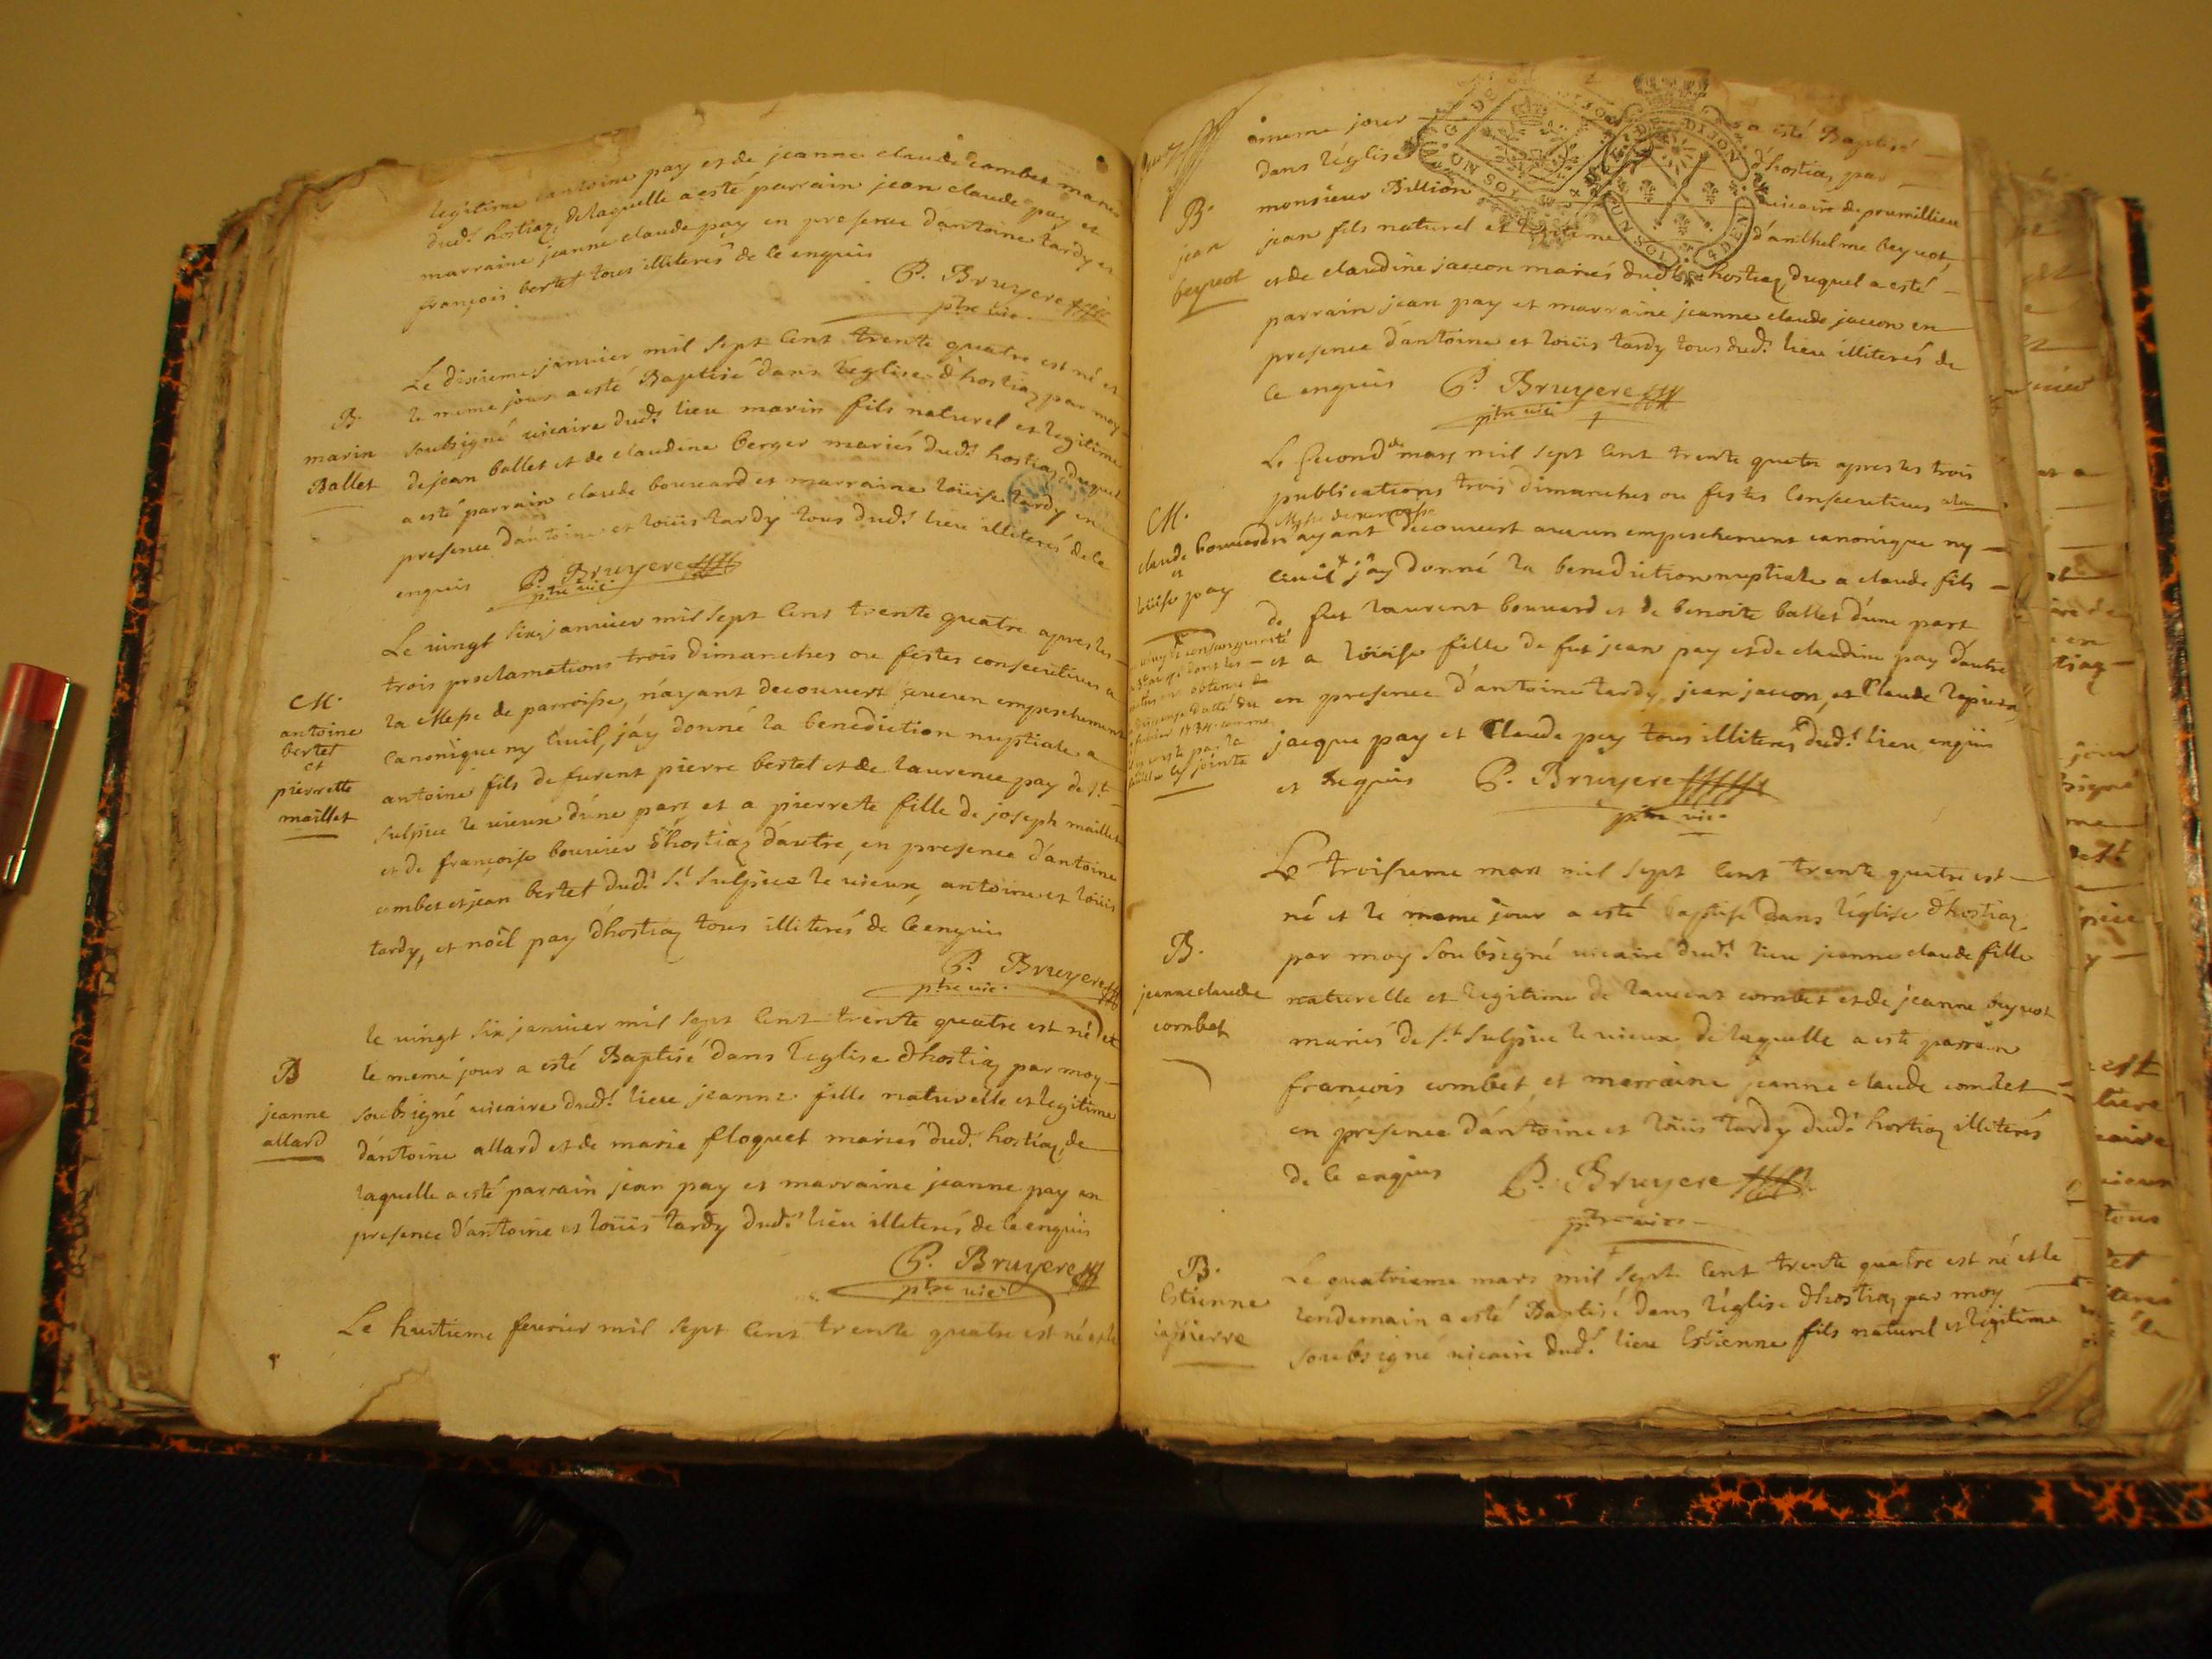 legitime d'antoine pay et de jeanne claude combet mariés
dud.t hostiaz, delaquelle a esté parrain jean claude pay et
marraine jeanne claude pay en presence d'antoine tardy et
françois bertet tous illiterés de ce enquis
P. Bruyere
ptre vic.
Le dixieme janvier mil sept cent trente quatre est né et
le meme jour a esté Baptisé dans l'eglise d'hostiaz par moy
B.
marin
Ballet
soubsigné vicaire dud.t lieu marin fils naturel et legitime
de jean ballet et de claudine berger mariés dud.t hostiaz, duquel
a esté parrain claude bouvard et marraine loüise tardy en
presence d'antoine et loüis tardy tous dud.t lieu illiterés de ce
enquis P. Bruyere
ptre vic.
Le vingt six janvier mil sept cent trente quatre apres les
trois proclamations trois dimanches ou festes consecutives a
M.
antoine
bertet
et
pierrette
maillet
la Messe de parroisse, n'ayant decouvert aucun empeschement
canonique ny civil, j'ay donné la benediction nuptiale a
antoine fils de furent pierre bertet et de laurence pay de s.t
sulpice le vieux d'une part et a pierrete fille de joseph maillet
et de françoise bouvier d'hostiaz d'autre, en presence d'antoine
combet et jean bertet dud.t s.t sulpice le vieux, antoine et loüis
tardy, et noël pay d'hostiaz tous illiterés de ce enquis
P. Bruyere
ptre vic.
le vingt six janvier mil sept cent trente quatre est né et
le meme jour a esté Baptisé dans l'eglise d'hostiaz par moy
B
jeanne
allard
soubsigné vicaire dud.t lieu jeanne fille naturelle et legitime
d'antoine allard et de marie floquet mariés dud.t hostiaz, de
laquelle a esté parrain jean pay et marraine jeanne pay en
presence d'antoine et loüis tardy dud.t lieu illiterés de ce enquis
P. Bruyere
ptre vic.
Le huitieme fevrier mil sept cent trente quatre est né et le
meme jour a esté Baptisé
dans l'église d'hostiaz par
G. DE DIJON
UN SOL 4 DEN
B.
jean
beyvot
monsieur Billion vicaire de premillieu
jean fils naturel et legitime d'anthelme beyvot
et de claudine jaccon mariés dud.t hostiaz, duquel a esté
parrain jean pay et marraine jeanne claude jaccon en
presence d'antoine et loüis tardy tous dud.t lieu illiterés de
ce enquis P. Bruyere
ptre vic.
Le second de mars mil sept cent trente quatre apres les trois
publications trois dimanches ou festes consecutives a la
Messe de parroisse
M.
claude bouvard
et
loüise pay
n'ayant decouvert aucun empeschement canonique ny
civil j'ay donné la benediction nuptiale a claude fils
de fut laurent bouvard et de benoite ballet d'une part
et a loüise fille de fut jean pay et de claudine pay d'autre
en presence d'antoine tardy, jean jaccon, et Claude lapierre,
jacque pay et Claude pay tous illiterés dud.t lieu enquis
et requis P. Bruyere
ptre vic.
Le troisieme mars mil sept cent trente quatre est
né et le meme jour a esté baptisé dans l'église d'hostiaz
B.
jeanne claude
combet
par moy soubsigné vicaire dud.t lieu jeanne claude fille
naturelle et legitime de laurent combet et de jeanne beyvot
mariés de s.t sulpice le vieux de laquelle a esté parrain
francois combet et marraine jeanne claude combet
en presence d'antoine et loüis tardy dud.t hostiaz illiterés
de ce enquis P. Bruyere
ptre vic.
B.
Estienne
lapierre
Le quatrieme mars mil sept cent trente quatre est né et le
lendemain a esté Baptisé dans l'église d'hostiaz par moy
soubsigné vicaire dud.t lieu Estienne fils naturel et légitime